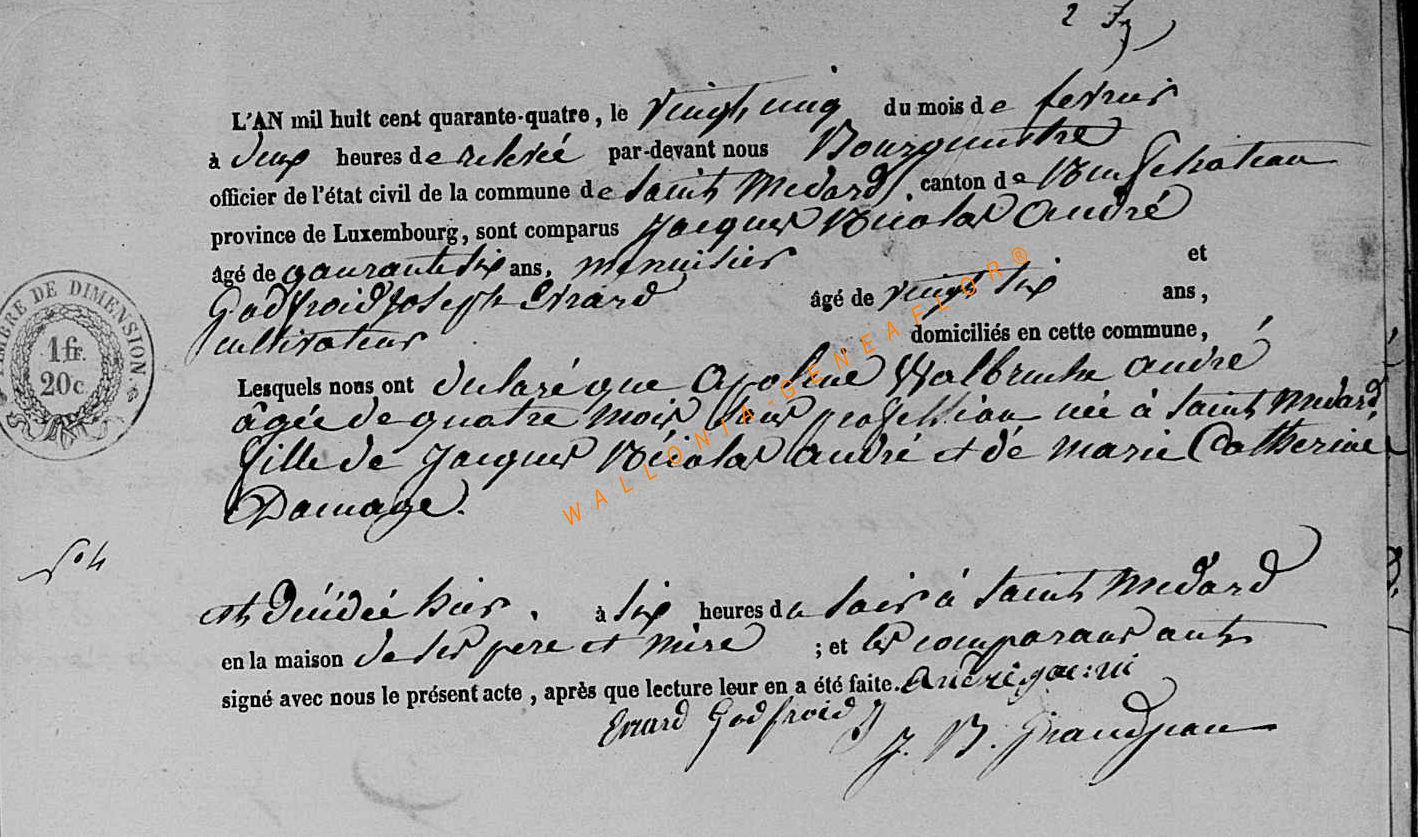 2
L'AN mil huit cent quarante-quatre, le vingt cinq du mois de fevrier
à deux heures de relevée par-devant nous Bourgumstre
officier de l'état civil de la commune de Saint Medard canton de Neufchateau
province de Luxembourg, sont comparus Jacques Nicolas André
âgé de quarante six ans, menuisier et
Godfroid Joseph Evrard âgé de vingt six ans,
cultivateur domiciliés en cette commune,
Lesquels nous ont declaré que Apoline Walbrucke André
âgée de quatre mois sans profession née à Saint Medard,
fille de Jacques Nicolas André et de Marie Catherine
Damage.
N° 4
est décédée hier, à six heures du soir à Saint Medard
en la maison de ses pere et mère ; et les comparans ont
signé avec nous le présent acte, après que lecture leur en a été faite. André
Evrard Godfroid J
J. B. Grandjean
TIMBRE DE DIMENSION
1 fr.
20 c.
WALLONIA-GENEAFLOR®